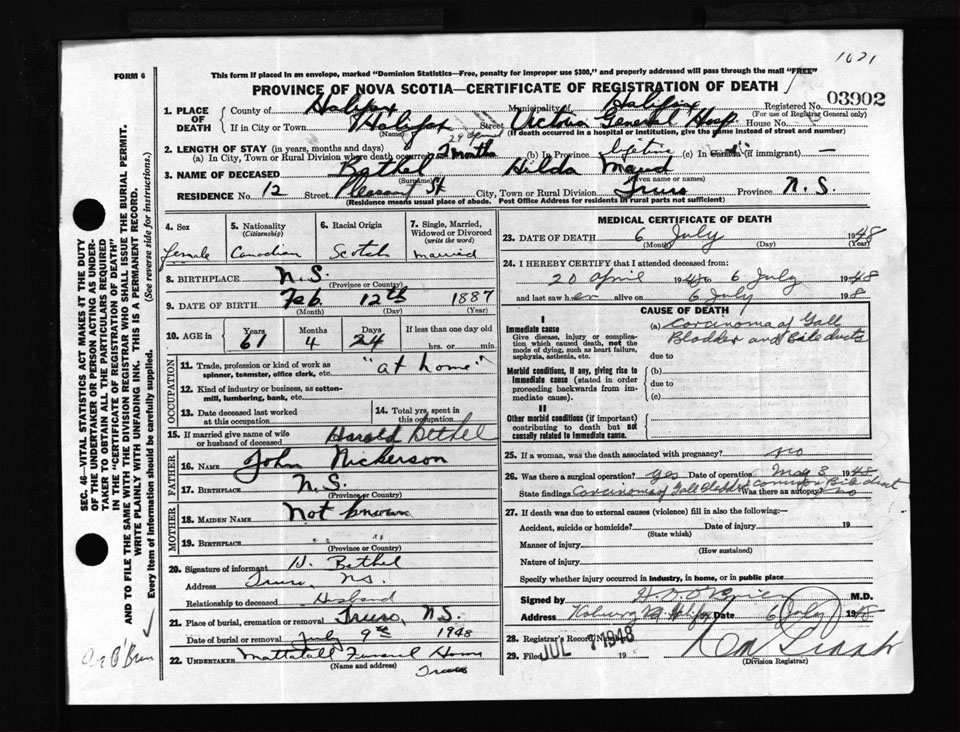 1021
FORM 6
This form if placed in an envelope, marked "Dominion Statistics—Free, penalty for improper use $300," and properly addressed will pass through the mail "FREE"
PROVINCE OF NOVA SCOTIA—CERTIFICATE OF REGISTRATION OF DEATH
1. PLACE OF DEATH County of Halifax Municipality of Halifax Registered No. 03902
(For use of Registrar General only)
If in City or Town Halifax (Name) Street Victoria General Hosp House No.
(If death occurred in a hospital or institution, give the name instead of street and number)
2. LENGTH OF STAY (in years, months and days)
(a) In City, Town or Rural Division where death occurred 2 months (b) In Province Lifetime (c) In Canada (if immigrant) —
3. NAME OF DECEASED Bethel Hilda Maud
(Surname) (Given name or names)
RESIDENCE No. 12 Street Pleasant St City, Town or Rural Division Truro Province N.S.
(Residence means usual place of abode. Post Office Address for residents in rural parts not sufficient)
4. Sex
female
5. Nationality (Citizenship)
Canadian
6. Racial Origin
Scotch
7. Single, Married, Widowed or Divorced (write the word)
married
8. BIRTHPLACE N.S.
(Province or Country)
9. DATE OF BIRTH Feb 12th 1887
(Month) (Day) (Year)
10. AGE in Years Months Days If less than one day old
61 4 24 hrs. or min.
OCCUPATION
11. Trade, profession or kind of work as spinner, teamster, office clerk, etc. "at home"
12. Kind of industry or business, as cotton-mill, lumbering, bank, etc.
13. Date deceased last worked at this occupation
14. Total yrs. spent in this occupation
15. If married give name of wife or husband of deceased Harold Bethel
FATHER
16. NAME John Nickerson
17. BIRTHPLACE N.S.
(Province or Country)
MOTHER
18. MAIDEN NAME Not known
19. BIRTHPLACE " "
(Province or Country)
20. Signature of informant H. Bethel
Address Truro, N.S.
Relationship to deceased Husband
21. Place of burial, cremation or removal Truro, N.S.
Date of burial or removal July 9th 1948
22. UNDERTAKER Mattatall Funeral Home
(Name and address) Truro
MEDICAL CERTIFICATE OF DEATH
23. DATE OF DEATH 6 July 1948
(Month) (Day) (Year)
24. I HEREBY CERTIFY that I attended deceased from:
20 April 1948 to 6 July 1948
and last saw her alive on 6 July 1948
CAUSE OF DEATH
I
Immediate cause
Give disease, injury or complication which caused death, not the mode of dying, such as heart failure, asphyxia, asthenia, etc.
(a) Carcinoma of Gall
Bladder and Bile ducts
due to
Morbid conditions, if any, giving rise to immediate cause (stated in order proceeding backwards from immediate cause).
(b)
due to
(c)
II
Other morbid conditions (if important) contributing to death but not causally related to immediate cause.
25. If a woman, was the death associated with pregnancy? no
26. Was there a surgical operation? yes Date of operation May 3 1948
State findings Carcinoma of Gall Bladder common Bile duct Was there an autopsy? no
27. If death was due to external causes (violence) fill in also the following:—
Accident, suicide or homicide? Date of injury 19
(State which)
Manner of injury
(How sustained)
Nature of injury
Specify whether injury occurred in industry, in home, or in public place
Signed by M.D.
Address Halifax Date 6 July 1948
28. Registrar's Record Number
29. Filed JUL 7 1948 19
(Division Registrar)
SEC. 46—VITAL STATISTICS ACT MAKES IT THE DUTY OF THE UNDERTAKER OR PERSON ACTING AS UNDERTAKER TO OBTAIN ALL THE PARTICULARS REQUIRED IN THE "CERTIFICATE OF REGISTRATION OF DEATH"
AND TO FILE THE SAME WITH THE DIVISION REGISTRAR WHO SHALL ISSUE THE BURIAL PERMIT.
WRITE PLAINLY WITH UNFADING INK. THIS IS A PERMANENT RECORD.
Every item of information should be carefully supplied. (See reverse side for instructions.)